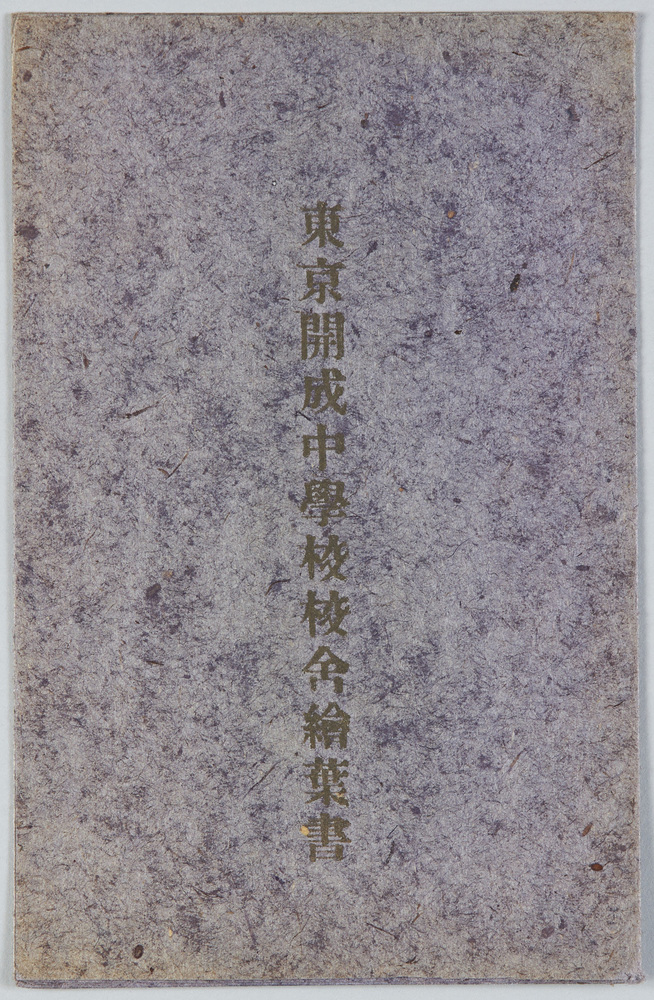 東京開成中學校校舍繪葉書